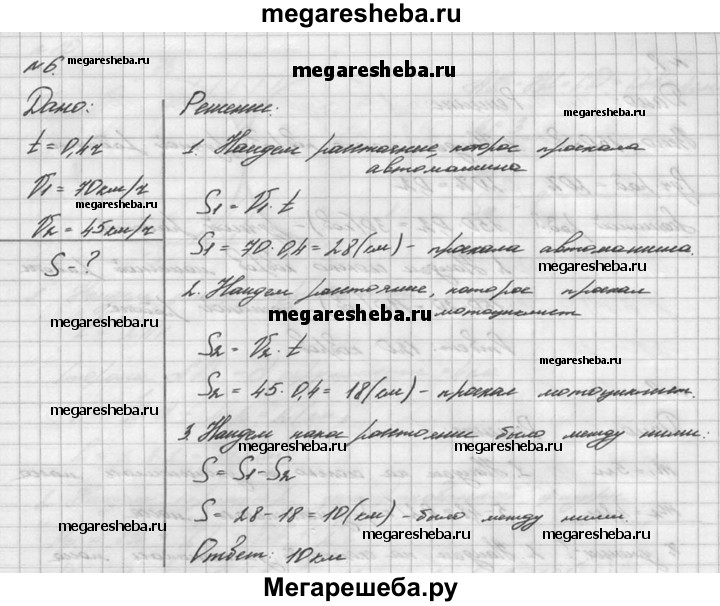 megaresheba.ru
№6.
megaresheba.ru
megaresheba.ru
Дано:
Решение:
megaresheba.ru
t = 0,4ч
1. Найдем расстояние, которое проехала
автомашина
V1 = 70 км/ч
megaresheba.ru
S1 = V1 · t
V2 = 45 км/ч
S1 = 70 · 0,4 = 28 (км) - проехала автомашина.
S - ?
megaresheba.ru
2. Найдем расстояние, которое проехал
мотоциклист
megaresheba.ru
megaresheba.ru
S2 = V2 · t
megaresheba.ru
S2 = 45 · 0,4 = 18 (км) - проехал мотоциклист.
megaresheba.ru
3. Найдем какое расстояние было между ними:
megaresheba.ru
megaresheba.ru
S = S1 - S2
S = 28 - 18 = 10 (км) - было между ними.
megaresheba.ru
megaresheba.ru
megaresheba.ru
Ответ: 10 км
Мегарешеба.ру